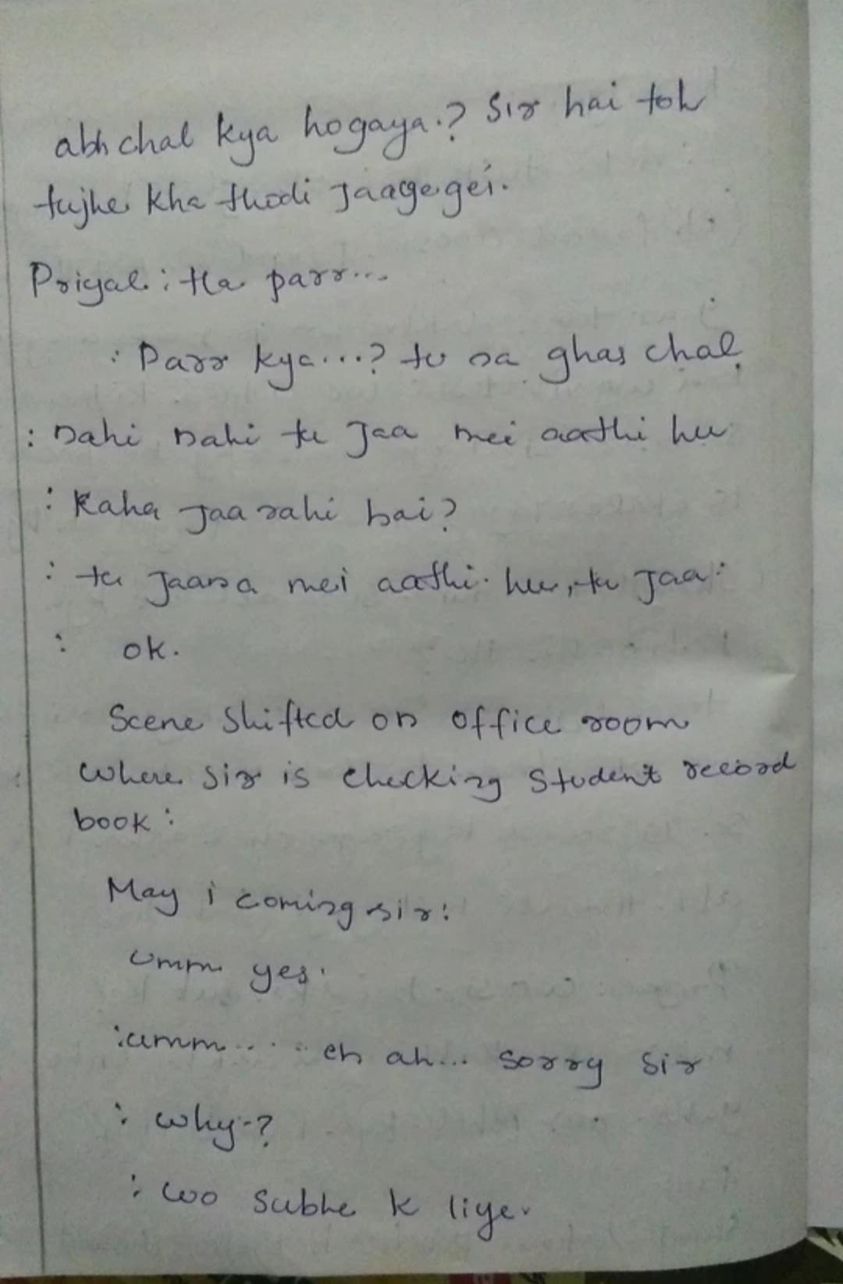 abh chal kya hogaya.? Sir hai toh
tujhe kha thodi Jaayegei.
Priyal : Ha parr...
: Parr kya...? tu na ghar chal
: nahi nahi tu Jaa mei aathi hu
: Kaha Jaa rahi hai?
: tu Jaana mei aathi hu, tu Jaa.
: ok.
Scene Shifted on office room
where sir is checking Student record
book :
May i coming sir:
umm yes.
: umm.... eh ah... sorry sir
: why-?
: wo subhe k liye.